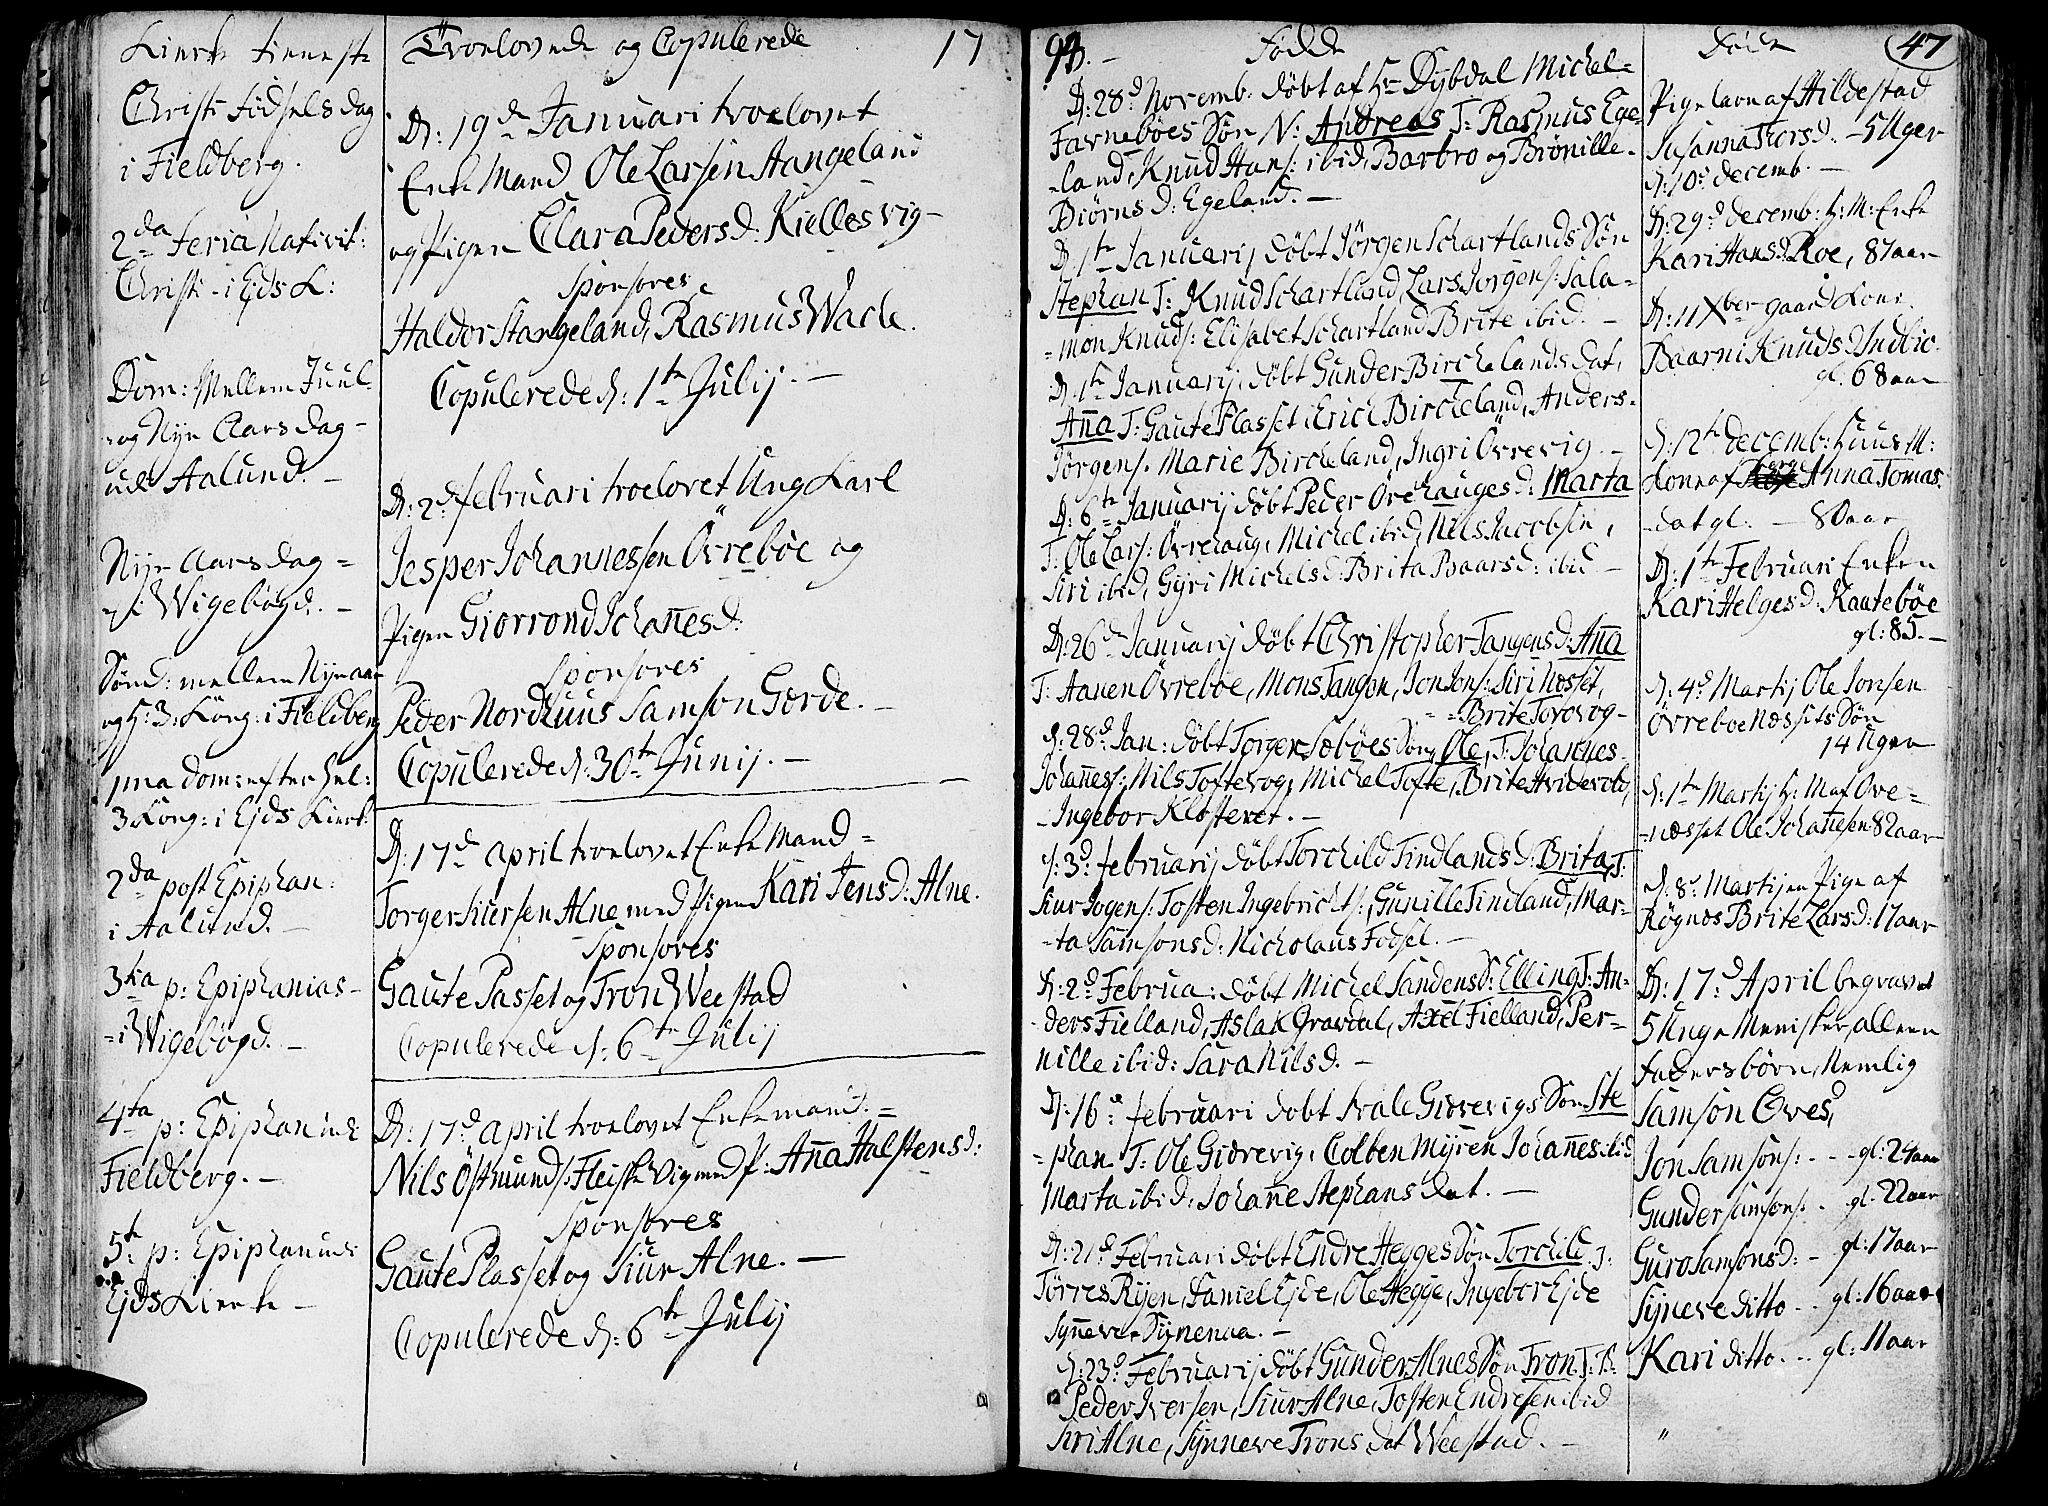 Kierke tieneste
Christi Födsels dag
i Fieldberg.
2da Feria Nativit:
Christi - i Ejds K:
Dom: Mellem Juul
og Nyn Aarsdag -
udi Aalund. -
Nyn Aarsdag =
i Wigebögd. -
Sönd: mellem Nynaar
og H: 3 Kong: i Fieldberg
1ma Dom: efter Hel:
3 Kong: i Ejds Kierk:
2da post Epiphan:
i Aalund. -
3tia p: Epiphanias -
= i Wigebögd. -
4ta p: Epiphan udi
Fieldberg. -
5te p: Epiphan udi
Ejds Kierke -
Troelovede og Copulerede 17
D: 19de Januari troelovet
Enke Mand Ole Larsen Aangeland
og Pigen Clara Peders D: Kiellesvig -
Sponsores
Haldor Stangeland, Rasmus Wack.
Copulerede d: 1te Julij. -
D: 2d februari troelovet Ung Karl
Jesper Johannessen Övreböe og
Pigen Giorrond Johanesd:
Sponsores
Peder Nordhuus Samson Gorde. -
Copulerede d: 30te Junij. -
D: 17de april troelovet Enke Mand =
Torger Siursen Alne med Pigen Kari Jens D: Alne.
Sponsores
Gaute Passet og Tron Weestad
Copulerede d: 6te Julij
D: 17d april troelovet Enkemand. =
Nils Östmunds: Fleiske Vig med P: Ana Halstensd:
Sponsores
Gaute Plasset og Siur Alne. -
Copulerede d: 6te Julij
94. - Födde
D: 28d Novemb. döbt af Hr Dybdal Michel =
Farneböes Sön N: Andreas T: Rasmus Ege =
= land, Knud Hans: ibid, Barbro og Brönille -
Biörns D: Egeland. -
D: 1te Januarij döbt Jörgen Schartlands Sön
Stephan T: Knud Schartland, Lars Jorgens: Sala =
= mon Knuds: Elisabet Schartland Brite ibid. -
D: 1te Januarij döbt Gunder Birchelands dat,
Ana T: Gaute Plasset Erich Bircheland, Anders -
Jörgens. Marie Bircheland, Ingri Övrevig. -
D: 6te Januarij döbt Peder Örehauges d: Marta
T: Ole Lars: Övrehaug, Michel ibid, Nils Jacobsen,
Siri ibid, Gyri Michels d: Brita Baarsd: ibid -
D: 26d Januarij döbt Christopher Tangens d: Ana
T: Aanen Övreboe, Mons Tangen, Jon Jons: Siri Nosset,
= Brite Torvog -
d: 28d Jan: döbt Torger Soböes Sön, Ole, T: Johannes -
Johaness: Nils Toftevog, Michel Tofte, Brite Hviderold,
- Ingebor Klosteret. -
d: 3d februarij döbt Torchild Tindlands D: Brita, T:
Siur Jogens: Tosten Ingebrichts:, Gunille Tindland, Mar =
= ta Samsons d: Nicholaus Fodsel. -
D: 2d Februa: döbt Michel Sandens S: Elling T: An =
= ders Fielland, Aslak Gravdal, Axel Fielland, Per =
nille ibid: Sara Nilsd. -
D: 16d februari dobt Svale Giörevigs Sön Ste
= phan T: Ole Giörevig, Colben Myren Johanes ibid
Marta ibid, Johane Stephans dat. -
D: 21d Februari döbt Endre Hegges Sön Torchild T:
Törres Ryen, Daniel Ejde, Ole Hegge, Ingebor Ejde
Synneve Synenaa. -
d: 23d Februarij döbt Gunder Alnes Sön Tron T:
Peder Iversen, Siur Alne, Tosten Endresen ibid
Siri Alne, Synneve Trons dat Weestad. -
Döde 47
Pige barn af Hildestad
Susanna Thorsd. - 5 Uger
d: 10d decemb. -
D: 29d decemb: H: M: Enke
Kari Hansd Roe, 87 aar
D: 11 Xber gaard Kone
Baarni Knuds: Indbio.
gl: 68 aar
d: 12te decemb: Huus M:
Kone af Anna Tomas
dat gl. - 80 aar
D: 1te Februari Enken
Kari Helges d: Kauteböe
gl: 85. -
d: 4d Martij Ole Jonsen
Övreboe Nossets Sön
14 Ugen
d: 1te Martij H: M af Ove =
= nosset Ole Johanesen 82 aar
d: 8d Martij en Pige af
Rögnos Brite Lars d: 17 aar
D: 17d April begravet
5 Unge Menisker, alle en
faders börn, Nemlig
Samson Oves,
Jon Samsons: - - gl: 24 aar
Gunder Samsons. - gl: 22 aar
Guro Samsons d: - gl: 17 aar
Syneve ditto - - gl: 16 aar
Kari ditto. - - gl: 11 aar